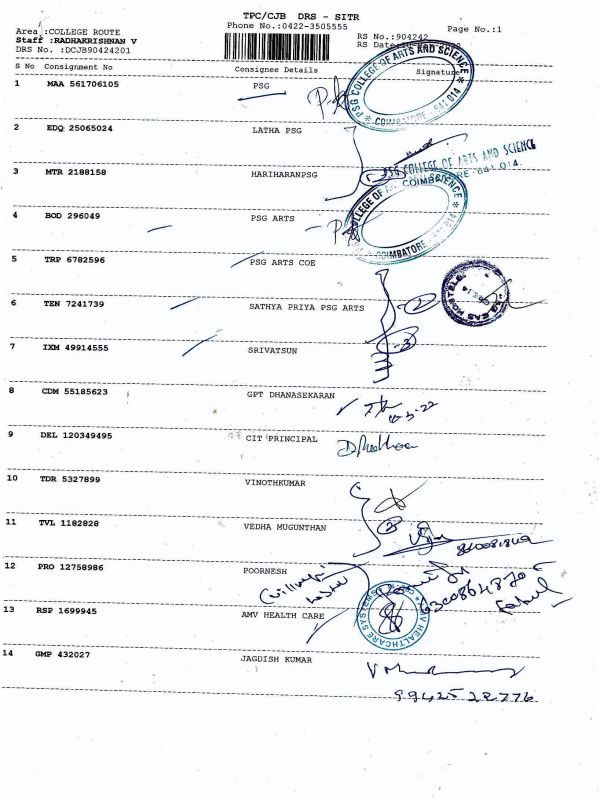 TPC/CJB DRS - SITR
Phone No.:0422-3505555
Page No.:1
Area :COLLEGE ROUTE
Staff :RADHAKRISHNAN V
DRS No. :DCJB90424201
RS No.:904242
RS Date:
S No Consignment No Consignee Details Signature
1 MAA 561706105 PSG
PSG COLLEGE OF ARTS AND SCIENCE
* COIMBATORE - 641 014 *
2 EDQ 25065024 LATHA PSG
PSG COLLEGE OF ARTS AND SCIENCE
COIMBATORE - 641 014.
3 MTR 2188158 HARIHARANPSG
4 BOD 296049 PSG ARTS
COIMBATORE 641 014
5 TRP 6782596 PSG ARTS COE
6 TEN 7241739 SATHYA PRIYA PSG ARTS
2
7 IXM 49914555 SRIVATSUN
3
8 CDM 55185623 GPT DHANASEKARAN
9 DEL 120349495 CIT PRINCIPAL
10 TDR 5327899 VINOTHKUMAR
11 TVL 1182828 VEDHA MUGUNTHAN
2
12 PRO 12758986 POORNESH
13 RSP 1699945 AMV HEALTH CARE
AMV HEALTHCARE SYSTEMS
14 GMP 432027 JAGDISH KUMAR
99425 22776